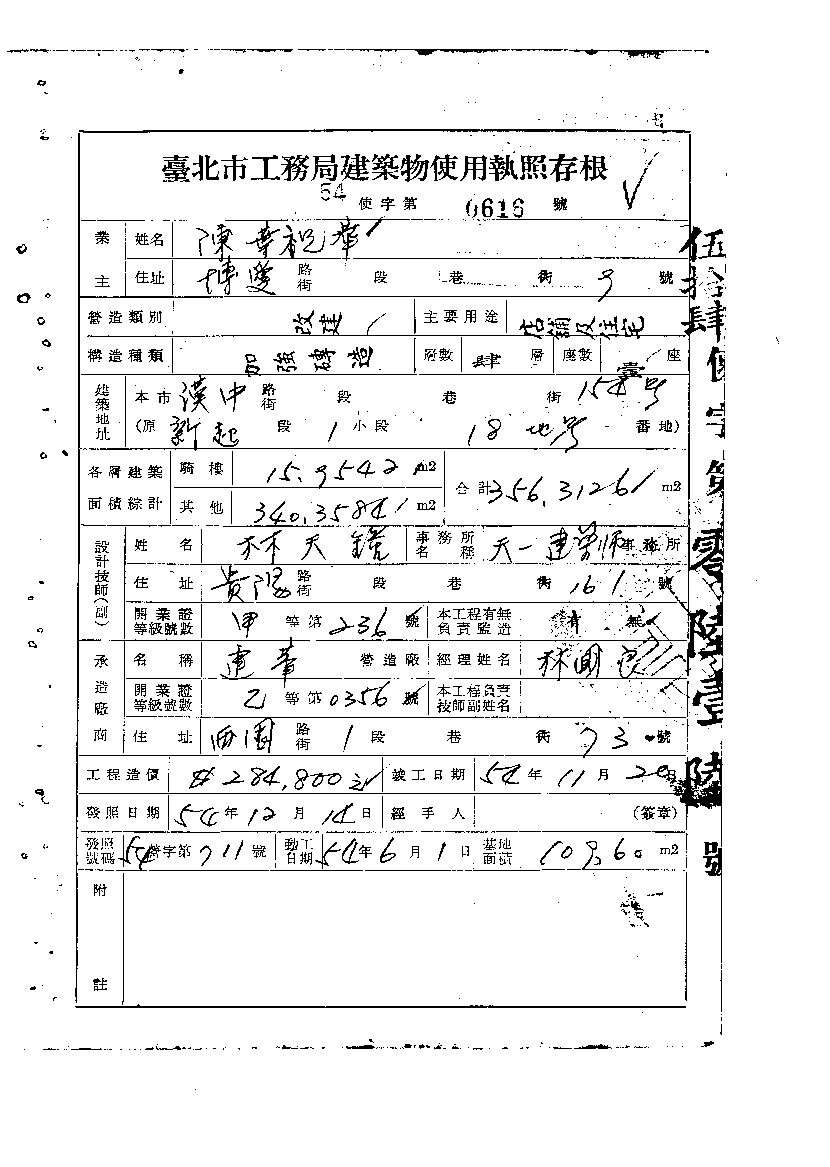 臺北市工務局建築物使用執照存根
54 使字第 0616 號
業主 姓名 陳華祝華
住址 博愛 路街 段 巷 街 9 號
營造類別 改建 主要用途 店鋪及住宅
構造種類 加強磚造 層數 肆 層 座數 壹 座
建築地址 本市 漢中 路街 段 巷 街 154號
(原 新起 段 1 小段 18地號 番地)
各層建築面積綜計 騎樓 15.9542 m2 合計 356.3126 m2
其他 340.3584 m2
設計技師(副) 姓名 林天鐃 事務所名稱 天一建築師事務所
住址 貴陽 路街 段 巷 街 161 號
開業證等級號數 甲 等第 236 號 本工程有無負責監造 有 無
承造廠商 名稱 建華 營造廠 經理姓名 林國良
開業證等級號數 乙 等第 0356 號 本工程負責技師副姓名
住址 西園 路街 1 段 巷 街 73 號
工程造價 284,800元 竣工日期 54年11月20日
發照日期 54年12月14日 經手人 (簽章)
發照號碼 54營字第711號 動工日期 54年6月1日 基地面積 109.60 m2
附註
伍拾肆使字第零陸壹陸號